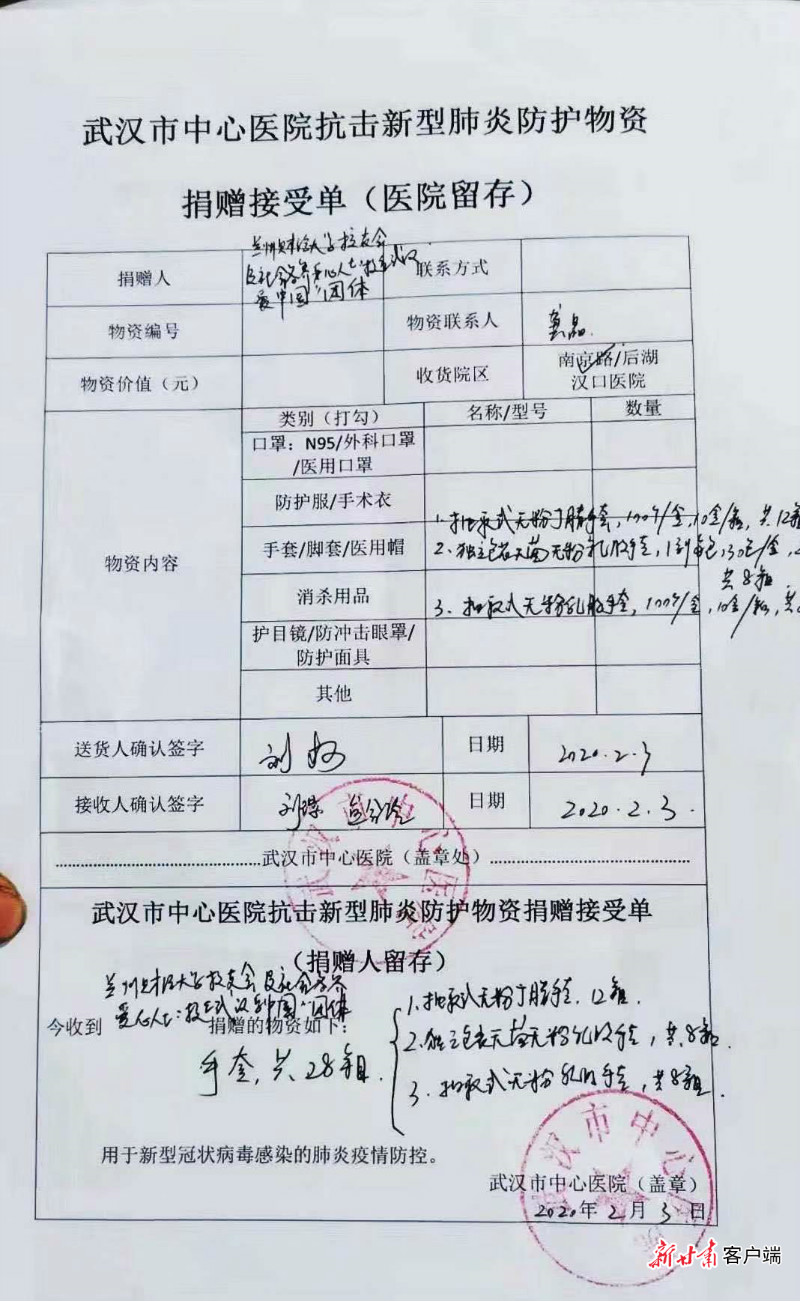 武汉市中心医院抗击新型肺炎防护物资
捐赠接受单（医院留存）
捐赠人
兰州财经大学校友会
及社会各界爱心人士"救主武汉
爱中国"团体
联系方式
物资编号
物资联系人
龚晶
物资价值（元）
收货院区
南京路/后湖
汉口医院
物资内容
类别（打勾）
名称/型号
数量
口罩：N95/外科口罩
/医用口罩
防护服/手术衣
手套/脚套/医用帽
1、抽取式无粉丁腈手套，100个/盒，10盒/箱，共12箱
2、独立包装灭菌无粉乳胶手套，1副/包，30包/盒，
共8箱
消杀用品
3、抽取式无粉乳胶手套，100个/盒，10盒/箱，共
护目镜/防冲击眼罩/
防护面具
其他
送货人确认签字
刘
日期
2020.2.3
接收人确认签字
刘
日期
2020.2.3
武汉市中心医院（盖章处）
武汉市中心医院抗击新型肺炎防护物资捐赠接受单
（捐赠人留存）
兰州财经大学校友会及社会各界
爱心人士
团体
今收到
捐赠的物资如下：
手套，共28箱
1、抽取式无粉丁腈手套，12箱
2、独立包装灭菌无粉乳胶手套，共8箱
3、抽取式无粉乳胶手套，共8箱
用于新型冠状病毒感染的肺炎疫情防控。
武汉市中心医院（盖章）
2020年2月3日
武汉市中心医院
新甘肃客户端